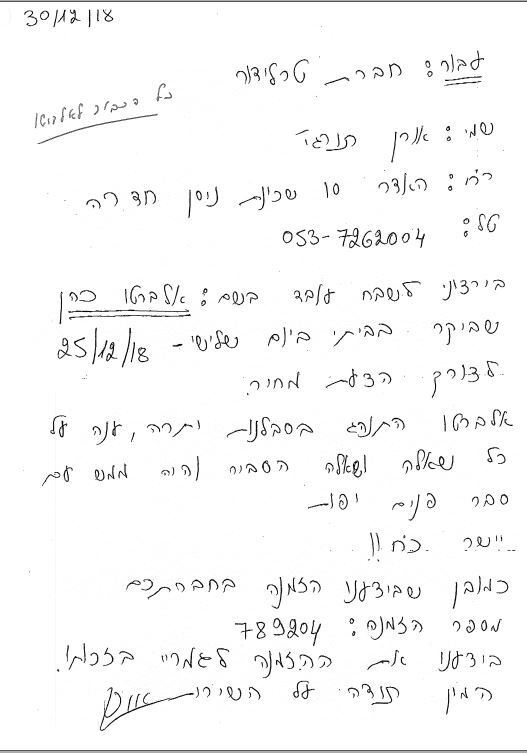 30/12/18
עבור: חברת טרלידור
כל הכבוד לאלברטו
שמי: אורן תורג'י
רח': האדר 10 שכונת ניסן חדרה
טל: 053-7262004
ברצוני לשבח עובד בשם: אלברטו כהן
שביקר בביתי ביום שלישי - 25/12/18
לצורך הצעת מחיר.
אלברטו התנהג בסבלנות יתרה, ענה על
כל שאלה ושאלה הסביר והיה ממש עם
סבר פנים יפות
יישר כח!!
כמובן שביצענו הזמנה בחברתכם
מספר הזמנה: 789204
ביצענו את ההזמנה לגמריי בזכותו.
המון תודה על השירות